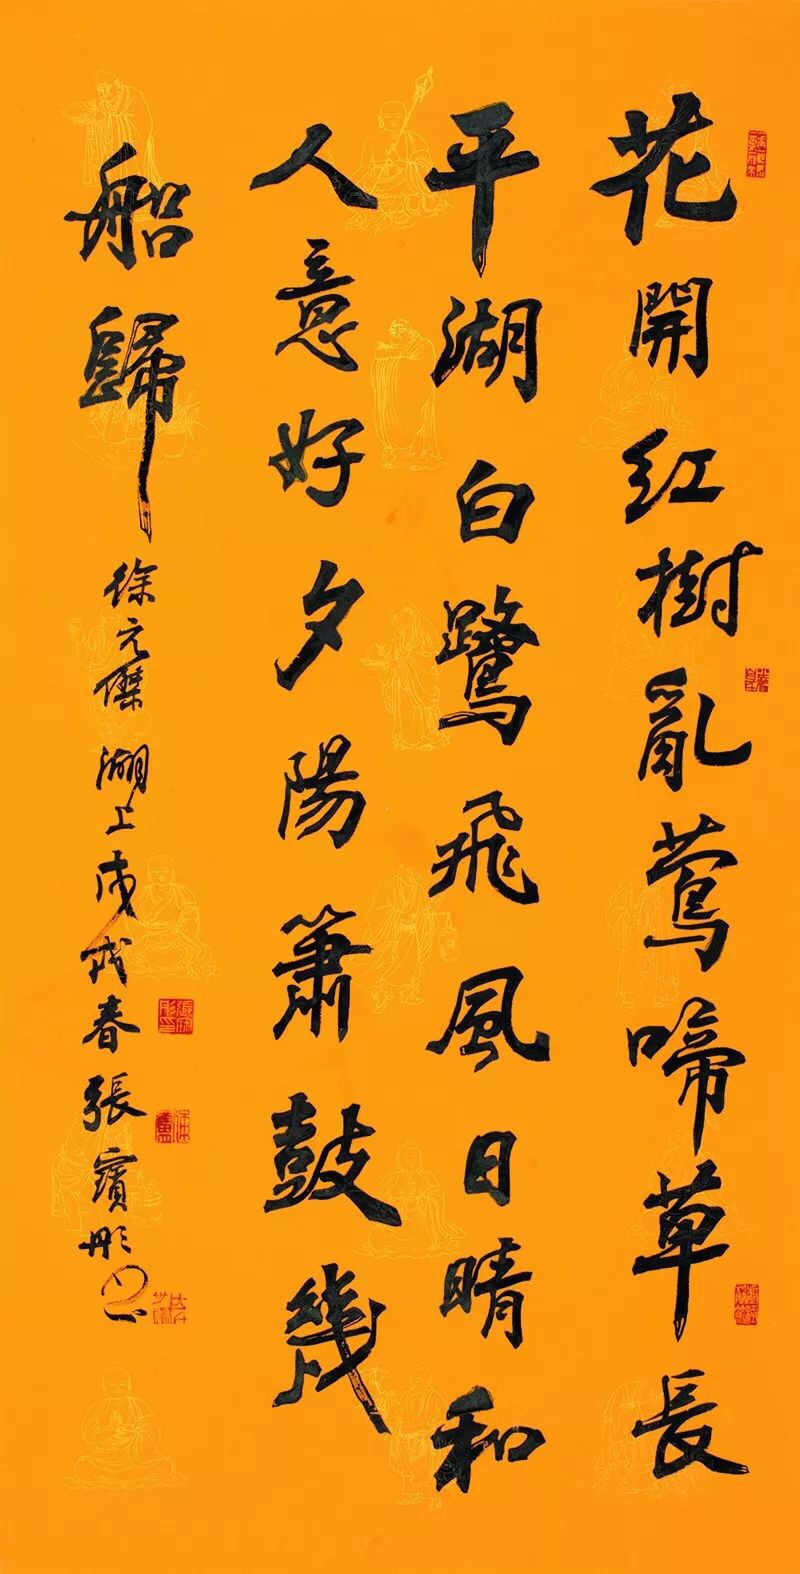 花開紅樹亂鶯啼草長
平湖白鷺飛風日晴和
人意好夕陽簫鼓幾
船歸 徐元傑 湖上 戊戌春 張寶彤